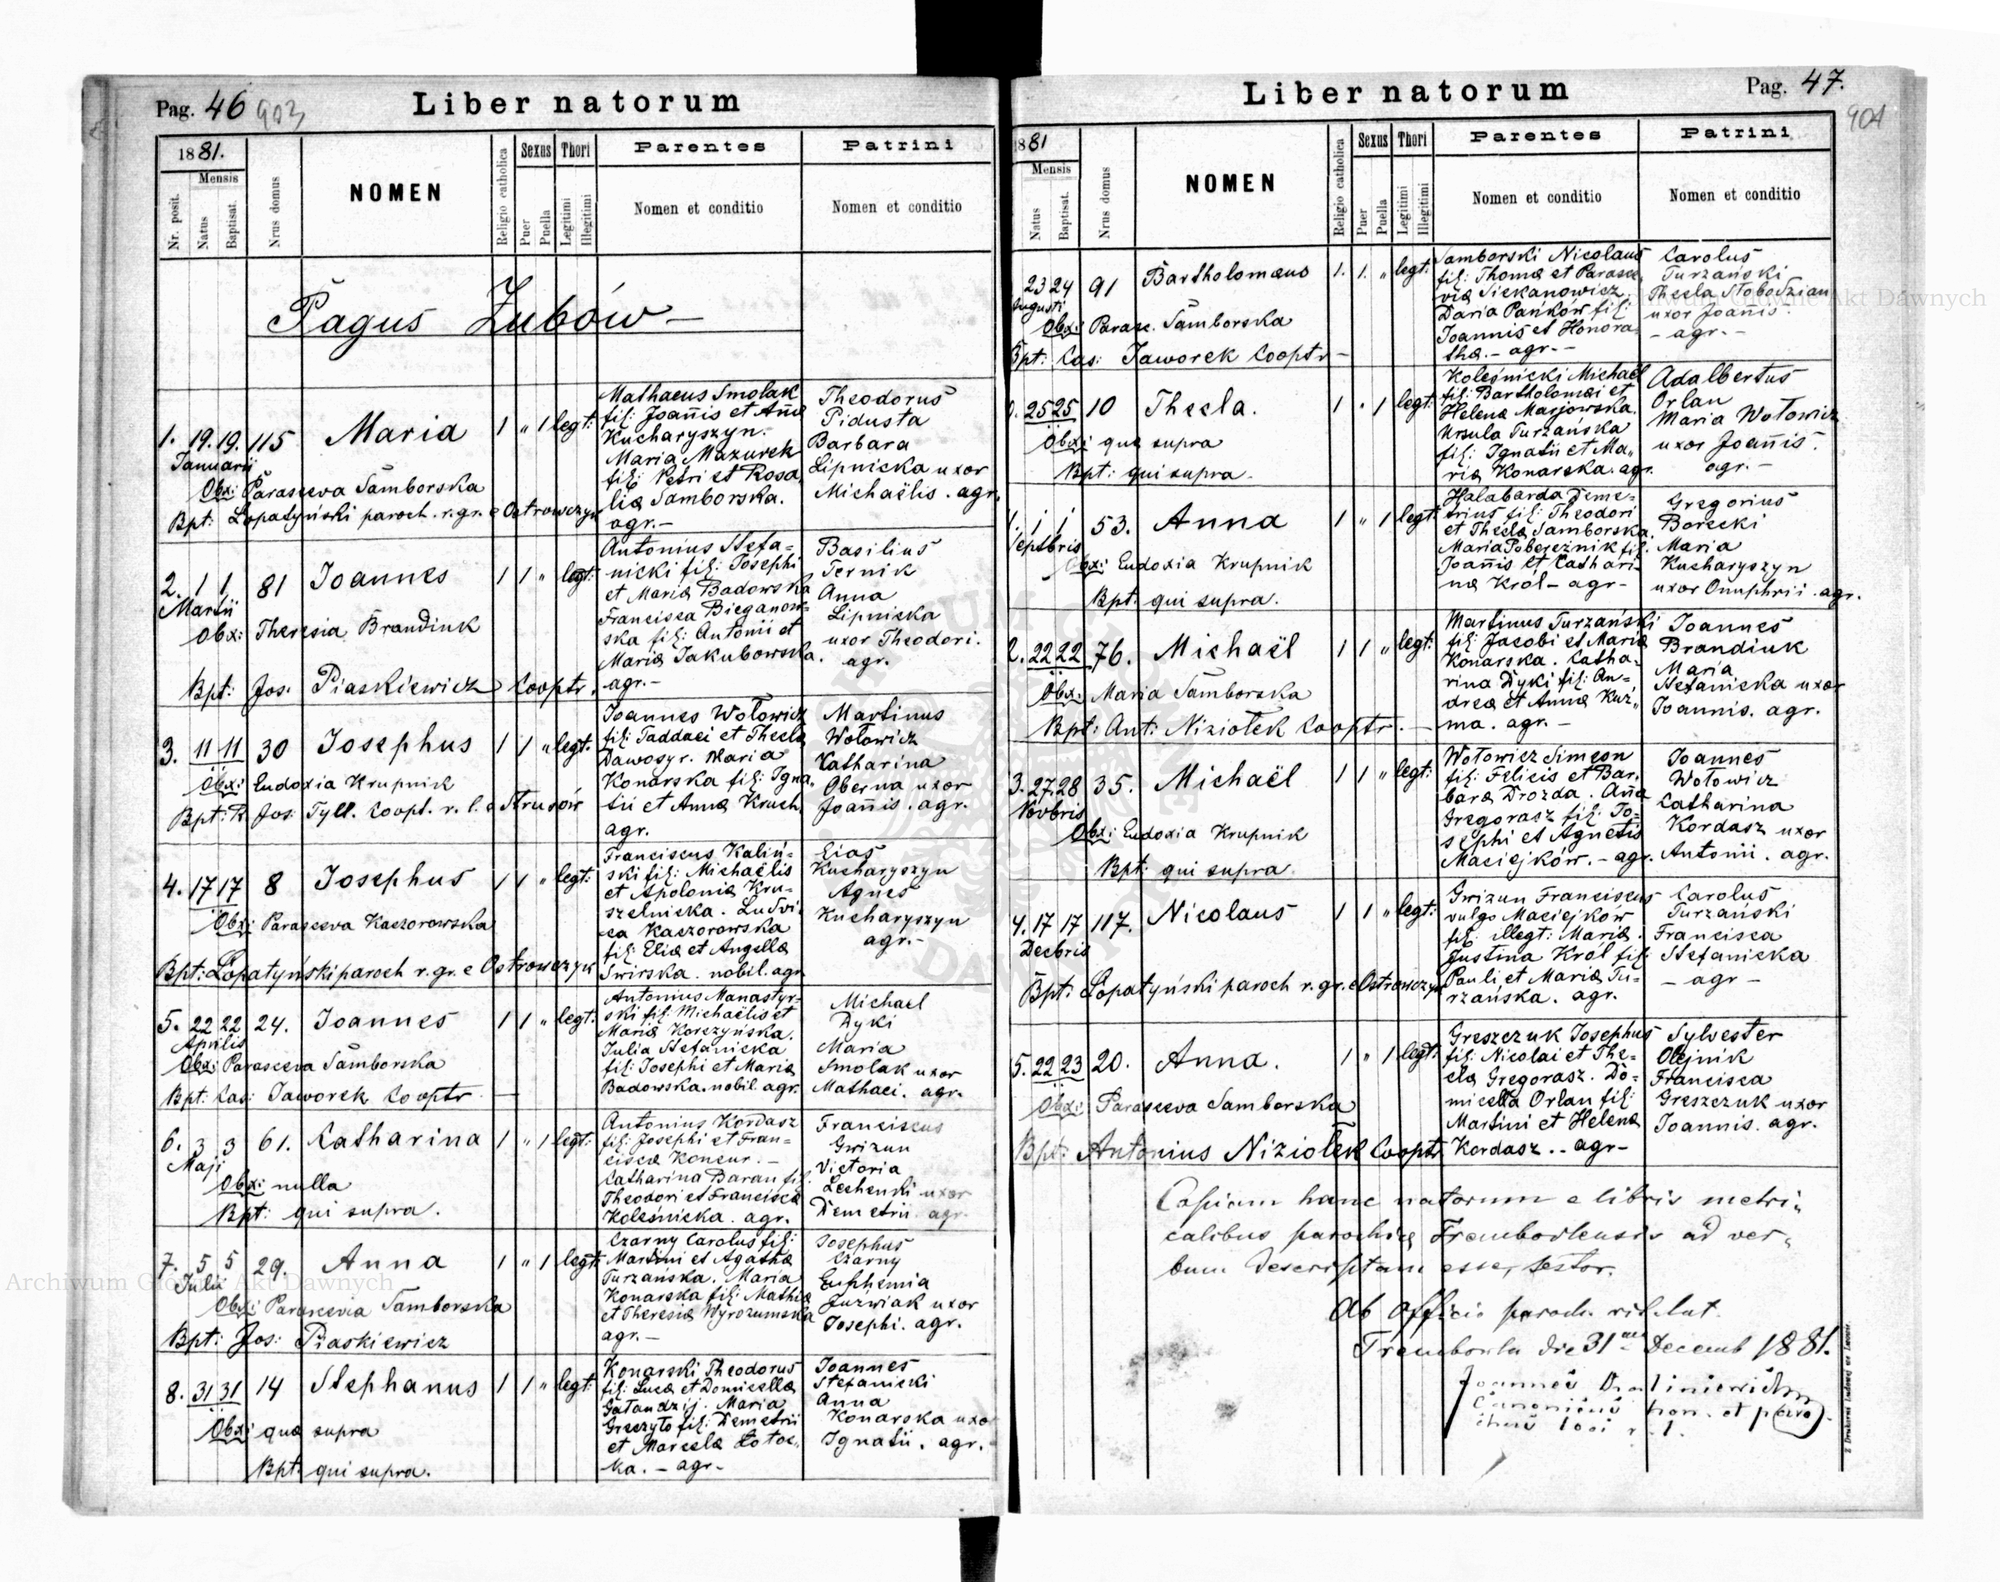 Pag. 46 903
Liber natorum
1881.
Mensis
Nr. posit.
Natus
Baptisat.
Nrus domus
NOMEN
Religio catholica
Sexus
Puer
Puella
Thori
Legitimi
Illegitimi
Parentes
Nomen et conditio
Patrini
Nomen et conditio
Pagus Zubów –
1. 19. 19. 115 Maria 1 " 1 legt:
Januarii
Obx: Parasceva Samborska
Bpt: Łopatyński paroch. r. gr. e Ostrowczyk
Mathaeus Smolak
fil: Joañis et Añæ
Kucharyszyn.
Maria Mazurek
fil: Petri et Rosa
liæ Samborska.
agr. –
Theodorus
Pidusta
Barbara
Lipnicka uxor
Michaëlis. agr.
2. 1 1 81 Joannes 1 1 " legt:
Martii
Obx: Theresia Brandiuk
Bpt: Jos. Piaskiewicz Cooptr.
Antonius Stefa=
nicki fil: Josephi
et Mariæ Badowska
Francisca Bieganow=
ska fil: Antonii et
Mariæ Jakubowska.
agr. –
Basilius
Ternik
Anna
Lipnicka
uxor Theodori.
agr.
3. 11 11 30 Josephus 1 1 " legt:
Obx: Eudoxia Krupnik
Bpt: R. Jos: Tyll. Coopt. r. l. e Strusów
Joannes Wołowicz
fil: Taddaei et Theclæ
Dawosyr. Maria
Konarska fil: Igna,
tii et Annæ Kruch.
agr.
Martinus
Wołowicz
Catharina
Oberna uxor
Joañis. agr.
4. 17 17 8 Josephus 1 1 " legt:
Obx: Parasceva Kaczorowska
Bpt: Łopatyński paroch r. gr. e Ostrowczyk
Franciscus Kaliń=
ski fil: Michaëlis
et Apoloniæ Kru=
szelnicka. Ludvi=
ca Kaczorowska
fil: Eliæ et Angellæ
Swirska. nobil. agr
Eias
Kucharyszyn
Agnes
Kucharyszyn
agr. –
5. 22 22 24. Joannes 1 1 " legt:
Aprilis
Obx: Parasceva Samborska
Bpt: Cas: Jaworek Cooptr –
Antonius Manastyr=
ski fil: Michaëlis et
Mariæ Korczyńska.
Julia Stefanicka
fil: Josephi et Mariæ
Badowska. nobil agr.
Michael
Dyki
Maria
Smolak uxor
Mathaei. agr.
6. 3 3 61. Catharina 1 " 1 legt:
Maji
Obx: nulla
Bpt: qui supra.
Antonius Kordasz
fil: Josephi et Fran=
ciscæ Koncur. –
Catharina Baran fil.
Theodori et Franciscæ
Koleśnicka. agr.
Franciscus
Grizun
Victoria
Lechenki uxor
Demetrii. agr.
7. 5 5 29. Anna 1 " 1 legt:
Julii
Obx: Parascevia Samborska
Bpt: Jos: Piaskiewicz
Czarny Carolus fil:
Martini et Agathæ
Turzańska. Maria
Konarska fil: Mathiæ
et Theresiæ Wyrozumska
agr. –
Josephus
Czarny
Euphemia
Juzwiak uxor
Josephi. agr.
8. 31 31 14 Stephanus 1 1 " legt:
Obx: quæ supra
Bpt. qui supra.
Konarski Theodorus
fil: Lucæ et Domicellæ
Gałandzij. Maria
Greszyło fil: Demetrii
et Marcelæ Łotoc,
ka. – agr.
Joannes
Stefanicki
Anna
Konarska uxo
Ignatii. agr.
Pag. 47.
904
Liber natorum
1881
Mensis
Natus
Baptisat.
Nrus domus
NOMEN
Religio catholica
Sexus
Puer
Puella
Thori
Legitimi
Illegitimi
Parentes
Nomen et conditio
Patrini
Nomen et conditio
23 24 91 Bartholomæus 1. 1. " legt:
Augusti
Obx: Parasc. Samborska
Bpt: Cas: Jaworek Cooptr –
Samborski Nicolaus
fil: Thomæ et Parasce,
viæ Siekanowicz.
Daria Pańków fil:
Joannis et Honora=
thæ. – agr. –
Carolus
Turzański
Thecla Słobodzian
uxor Joañis.
– agr. –
0. 25 25 10 Thecla. 1 " 1 legt:
Obx: quæ supra
Bpt: qui supra.
Koleśnicki Michaël
fil: Bartholomæi et
Helenæ Marjowska.
Ursula Turzańska
fil: Ignatii et Ma,
riæ Konarska. agr.
Adalbertus
Orlan
Maria Wołowicz
uxor Joañis.
agr. –
1. 1 1 53. Anna 1 " 1 legt:
Septbris
Obx: Eudoxia Krupnik
Bpt. qui supra.
Halabarda Deme=
trius fil: Theodori
et Theclæ Samborska.
Maria Pobereźnik fil.
Joañis et Cathari=
næ Król – agr –
Gregorius
Borecki
Maria
Kucharyszyn
uxor Onuphrii. agr.
2. 22 22 76. Michaël 1 1 " legt:
Obx: Maria Samborska
Bpt: Ant: Niziołek Cooptr. –
Martinus Turzański
fil: Jacobi et Mariæ
Konarska. Catha=
rina Dyki fil: An=
dreæ et Annæ Kuź,
ma. agr. –
Joannes
Brandiuk
Maria
Stefanicka uxor
Joannis. agr.
3. 27. 28 35. Michaël 1 1 " legt:
Novbris
Obx: Eudoxia Krupnik
Bpt: qui supra.
Wołowicz Simeon
fil: Felicis et Bar,
baræ Drozda. Aña
Gregorasz fil: Jo=
sephi et Agnetis
Maciejków. – agr.
Joannes
Wołowicz
Catharina
Kordasz uxor
Antonii. agr.
4. 17 17 117. Nicolaus 1 1 " legt:
Decbris
Bpt: Łopatyński paroch r. gr. e Ostrowczyk
Grizun Franciscus
vulgo Maciejków
fil: illegt: Mariæ.
Justina Król fil:
Pauli et Mariæ Tu=
rzańska. agr.
Carolus
Turzański
Francisca
Stefanicka
– agr –
5. 22 23 20. Anna. 1 " 1 legt:
Obx: Parasceva Samborska
Bpt: Antonius Niziołek Cooptr
Greszczuk Josephus
fil: Nicolai et The=
clæ Gregorasz. Do=
micella Orlan fil:
Martini et Helenæ
Kordasz. – agr –
Sylvester
Olejnik
Francisca
Greszczuk uxor
Joannis. agr.
Copiam hanc natorum e libris metri,
calibus parochiæ Trembovlensis ad ver,
bum descriptam esse, testor.
Ab officio paroch. rit. lat.
Trembowla die 31 Decemb 1881.
Joannes
Canonicus hon. et paro
chus loci r. l.
Z Drukarni Ludowej we Lwowie.
Archiwum Główne Akt Dawnych
Archiwum Główne Akt Dawnych